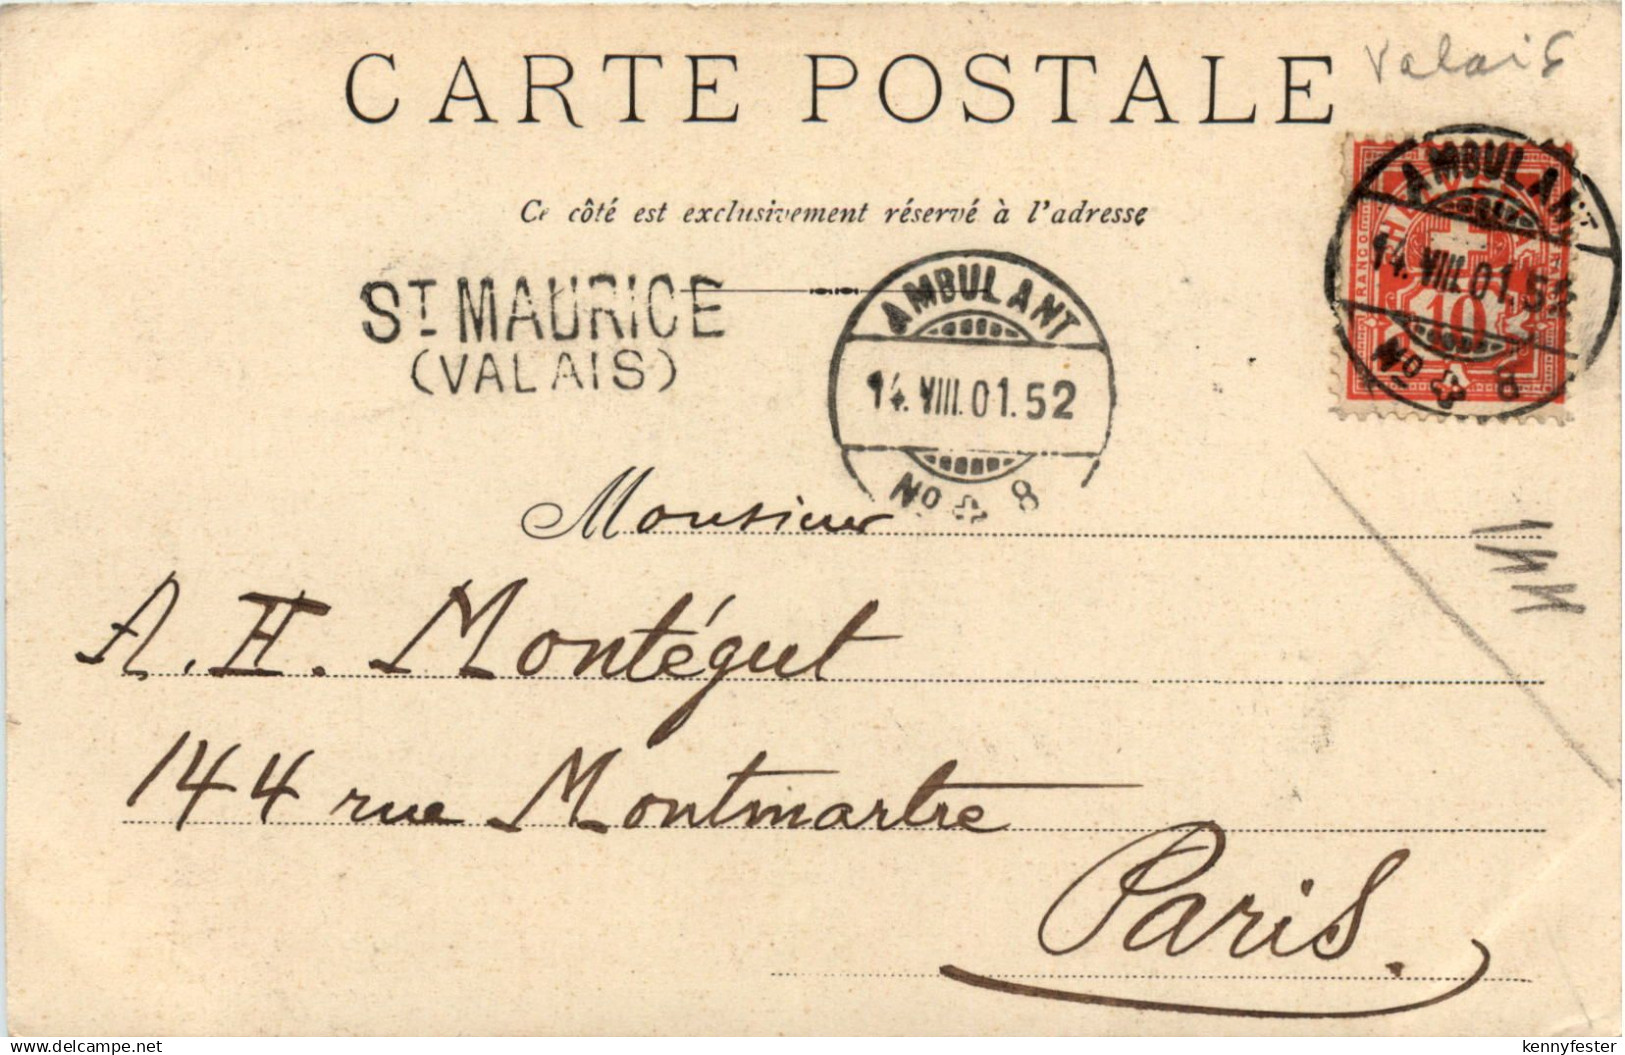 CARTE POSTALE
Valais
Ce côté est exclusivement réservé à l'adresse
ST MAURICE
(VALAIS)
AMBULANT
14.VIII.01.52
No 8
AMBULANT
14.VIII.01.52
No 8
FRANCO
10
Monsieur
A. H. Montégut
144 rue Montmartre
Paris.
delcampe.net
kennyfester